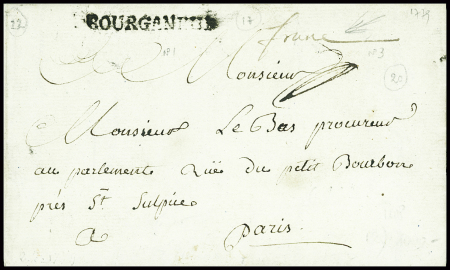 22
17
1779
BOURGANEUF
franc
n°1
n°3
Monsieur
20
Monsieur Le Bas procureur
au parlement Rüe du petit Bourbon
prés St Sulpice
a Paris